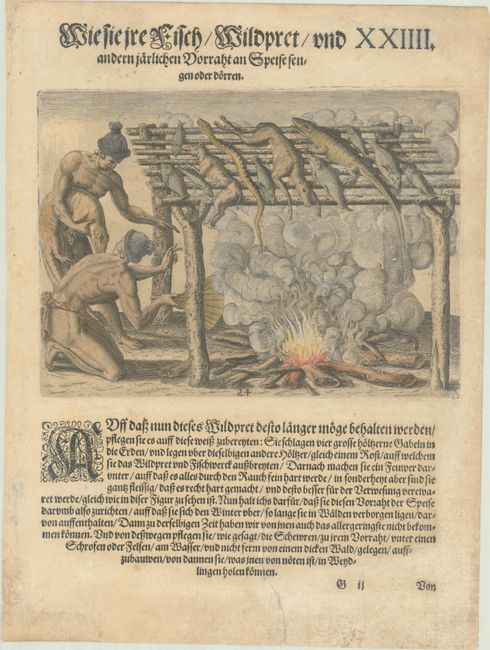 Wie sie jre Fisch / Wildpret / vnd XXIIII.
andern järlichen Vorraht an Speise sen-
gen oder dörren.
24
AVff daß nun dieses Wildpret desto länger möge behalten werden /
pflegen sie es auff diese weiß zubereyten: Sie schlagen vier grosse höltzerne Gabeln in
die Erden / vnd legen vber dieselbigen andere Höltzer / gleich einem Rost / auff welchem
sie das Wildpret vnd Fischwerck außbreyten / Darnach machen sie ein Feuwer dar-
vnter / auff daß es alles durch den Rauch fein hart werde / in sonderheyt aber sind sie
gantz fleissig / daß es recht hart gemacht / vnd desto besser für der Verwesung verewa-
ret werde / gleich wie in diser Figur zu sehen ist. Nun halt ich darfür / daß sie diesen Vorraht der Speise
darvmb also zurichten / auff daß sie sich den Winter vber / so lange sie in Wälden verborgen ligen / dar-
von auffenthalten / Dann zu derselbigen Zeit haben wir von jnen auch das allergeringste nicht bekom-
men können. Vnd von deßwegen pflegen sie / wie gesagt / die Schewren / zu jrem Vorraht / vnter einen
Schrofen oder Felsen / am Wasser / vnd nicht fern von einem dicken Wald / gelegen / auff-
zubauwen / von dannen sie / was jnen von nöten ist / in Weyd-
lingen holen können.
G ij Von